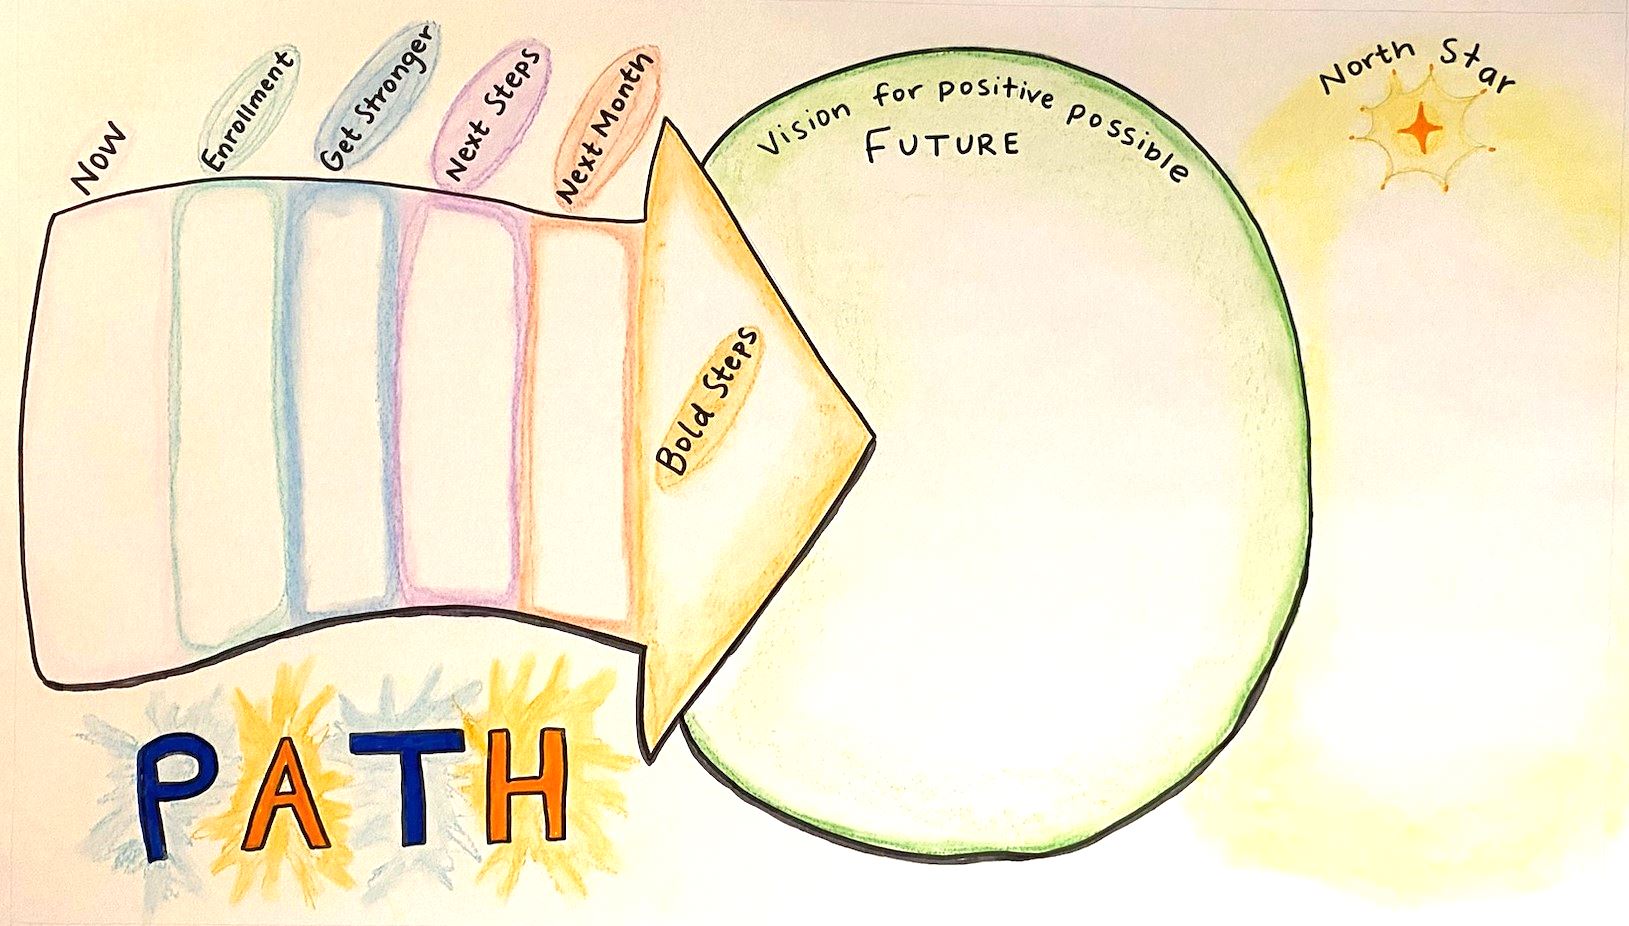 Now
Enrollment
Get Stronger
Next Steps
Next Month
Bold Steps
Vision for positive possible
FUTURE
North Star
PATH